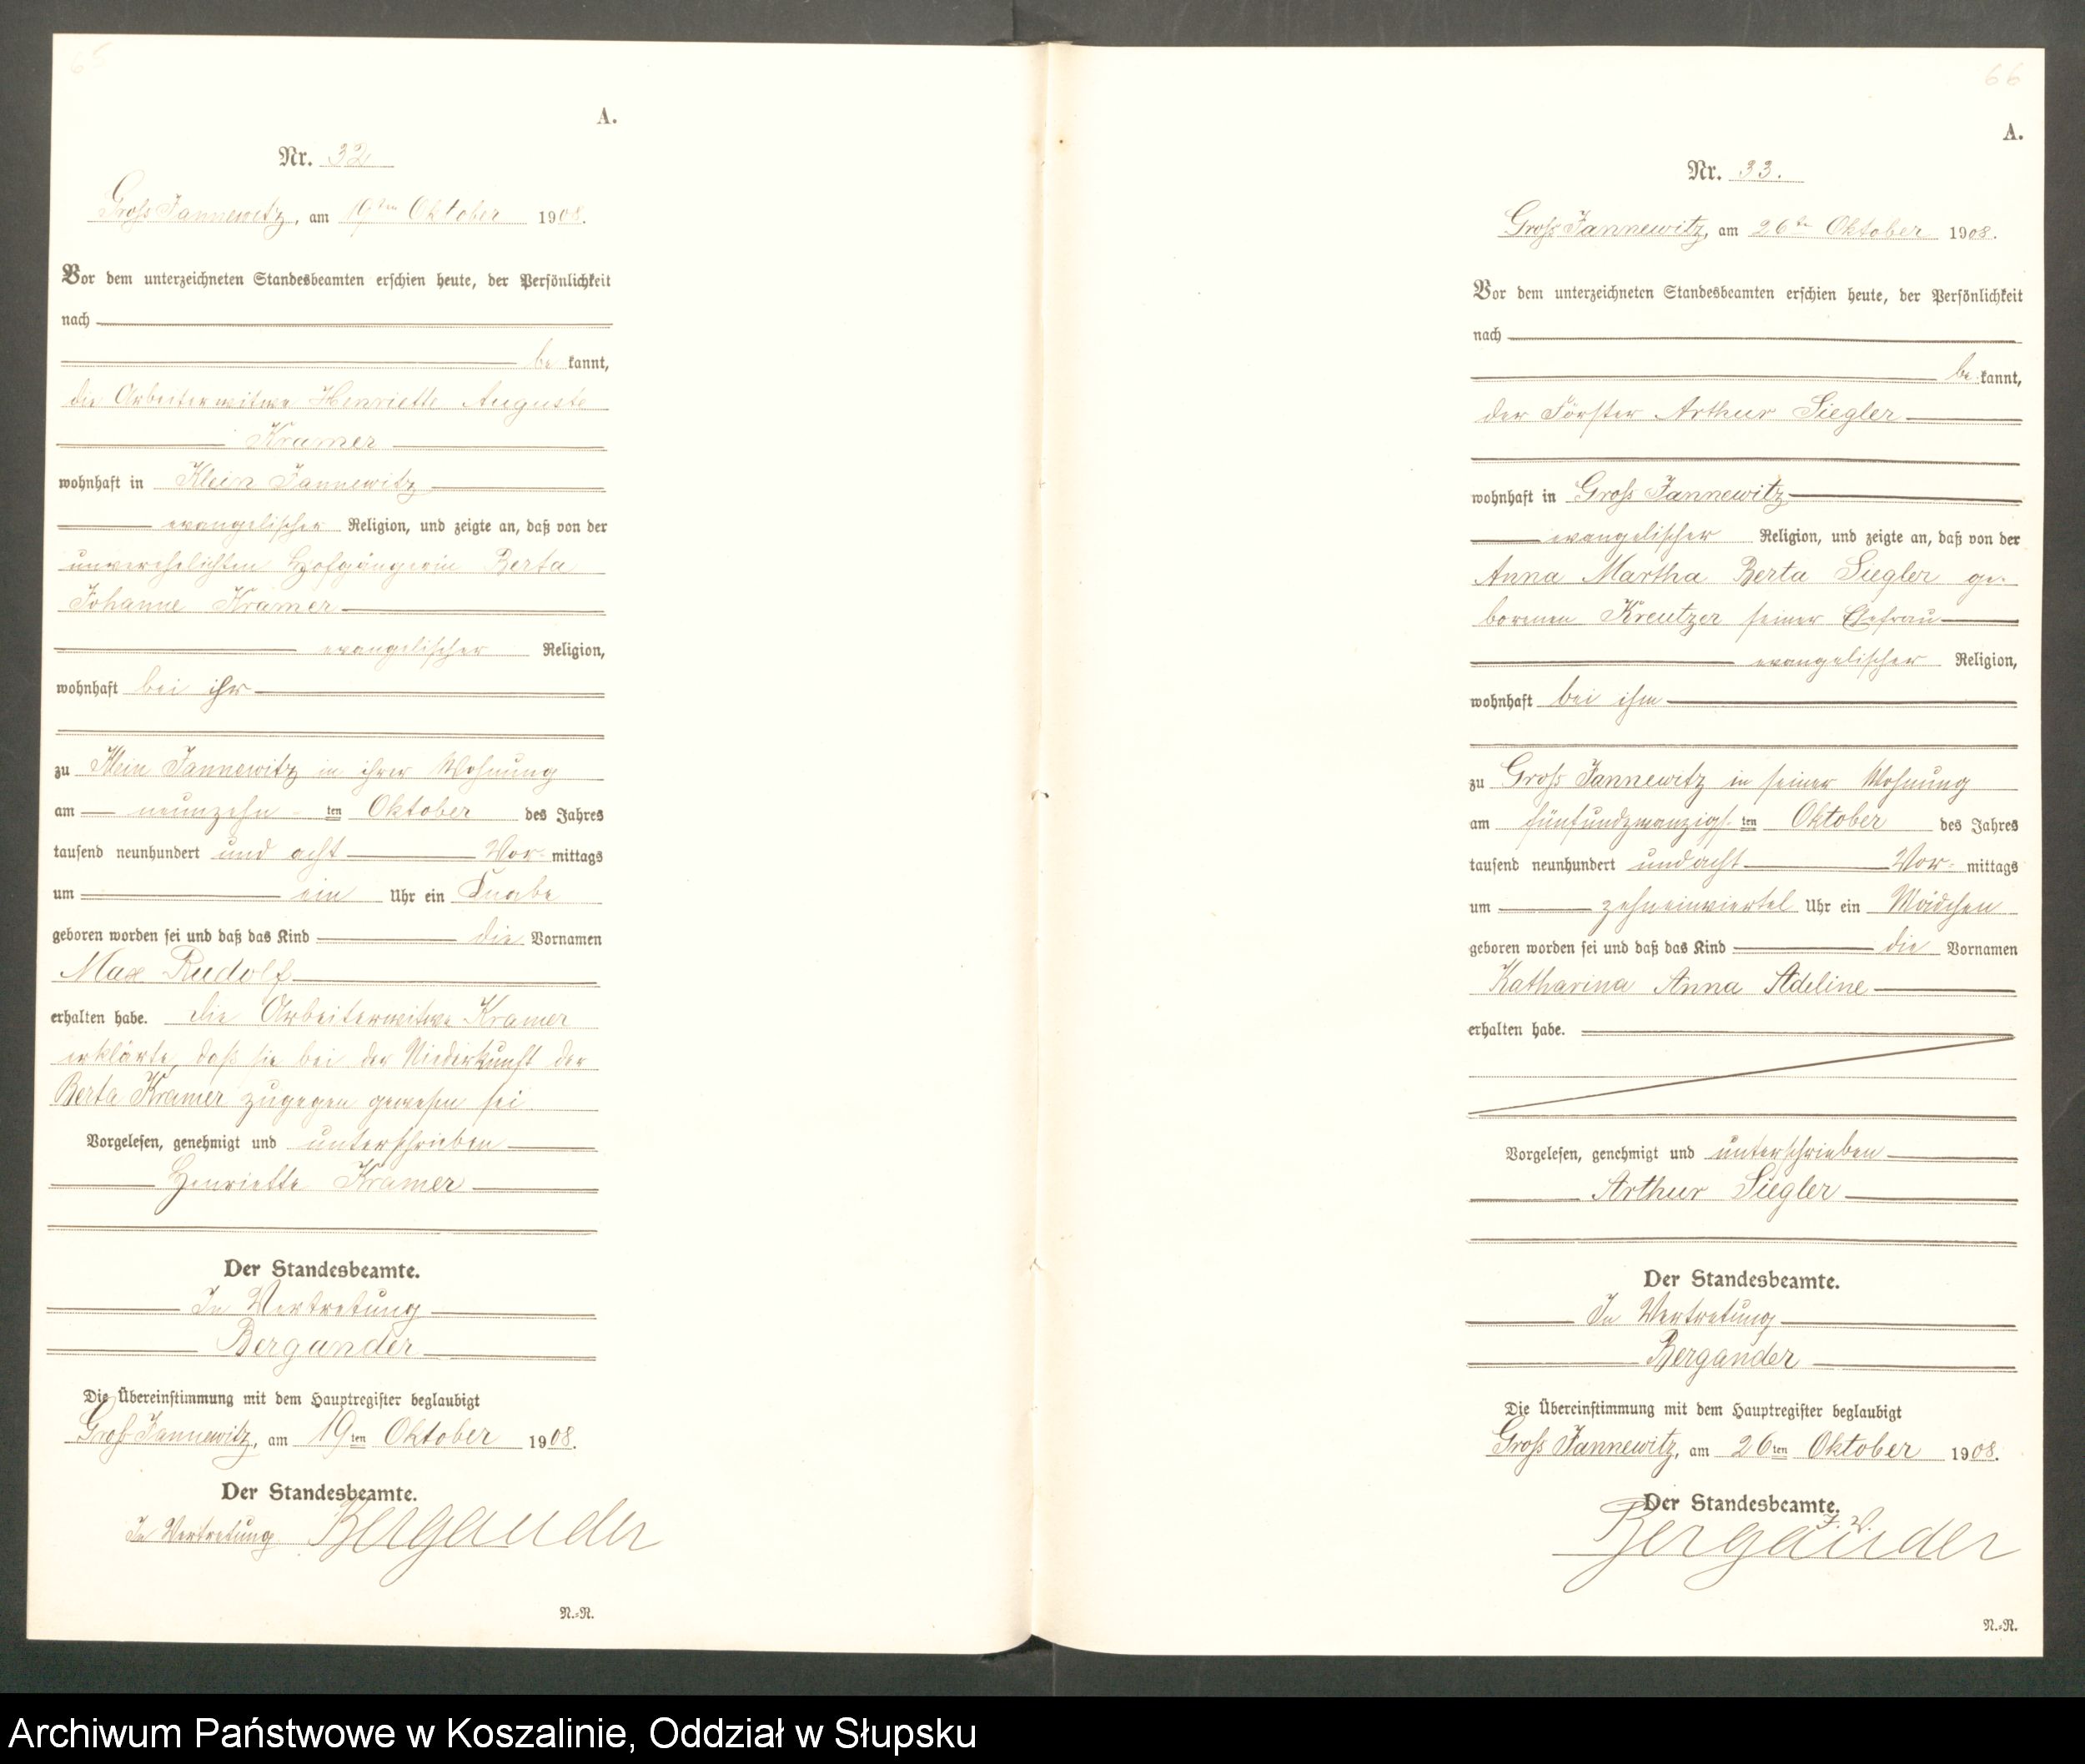 65
A.
Nr. 32
Groß Jannewitz, am 19ten Oktober 1908.
Vor dem unterzeichneten Standesbeamten erschien heute, der Persönlichkeit
nach
be kannt,
die Arbeiterwitwe Henriette Auguste
Kramer
wohnhaft in Klein Jannewitz
evangelischer Religion, und zeigte an, daß von der
unverehelichten Hofgängerin Berta
Johanne Kramer
evangelischer Religion,
wohnhaft bei ihr
zu Klein Jannewitz in ihrer Wohnung
am neunzehn ten Oktober des Jahres
tausend neunhundert und acht Vor- mittags
um ein Uhr ein Knabe
geboren worden sei und daß das Kind die Vornamen
Max Rudolf
erhalten habe. Die Arbeiterwitwe Kramer
erklärte, daß sie bei der Niederkunft der
Berta Kramer zugegen gewesen sei.
Vorgelesen, genehmigt und unterschrieben
Henriette Kramer
Der Standesbeamte.
In Vertretung
Bergander
Die Übereinstimmung mit dem Hauptregister beglaubigt
Groß Jannewitz, am 19ten Oktober 1908.
Der Standesbeamte.
In Vertretung Bergander
N.=N.
66
A.
Nr. 33.
Groß Jannewitz, am 26te Oktober 1908.
Vor dem unterzeichneten Standesbeamten erschien heute, der Persönlichkeit
nach
be kannt,
der Förster Arthur Siegler
wohnhaft in Groß Jannewitz
evangelischer Religion, und zeigte an, daß von der
Anna Martha Berta Siegler ge-
borenen Kreutzer seiner Ehefrau
evangelischer Religion,
wohnhaft bei ihm
zu Groß Jannewitz in seiner Wohnung
am fünfundzwanzigs ten Oktober des Jahres
tausend neunhundert und acht Vor- mittags
um zehneinviertel Uhr ein Mädchen
geboren worden sei und daß das Kind die Vornamen
Katharina Anna Adeline
erhalten habe.
Vorgelesen, genehmigt und unterschrieben
Arthur Siegler
Der Standesbeamte.
In Vertretung
Bergander
Die Übereinstimmung mit dem Hauptregister beglaubigt
Groß Jannewitz, am 26ten Oktober 1908.
Der Standesbeamte.
I. V.
Bergander
N.=N.
Archiwum Państwowe w Koszalinie, Oddział w Słupsku